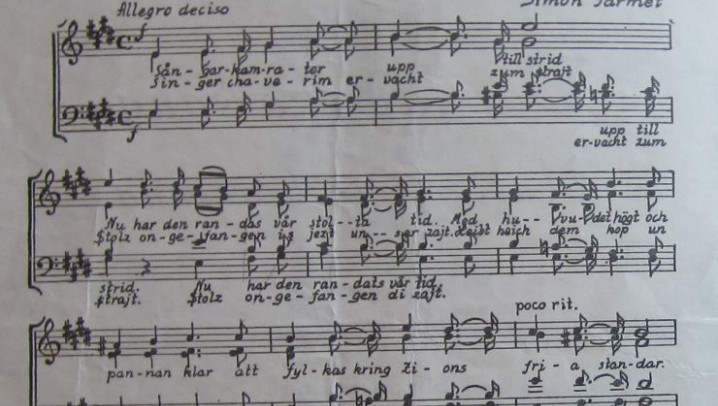 Allegro deciso
Simon Parmet
f
Sån-gar-kam-ra-ter upp till strid
Sin-ger cha-ve-rim er-vacht zum strajt
f
upp till
er-vacht zum
Nu har den ran-das vår stol--ta tid. Med hu--vu-det högt och
Stolz on-ge-fan-gen iz jezt un--ser zajt. Heibt heich dem kop un
strid. Nu har den ran-dats vår tid.
strajt. Stolz on-ge-fan-gen di zajt.
poco rit.
pan-nan klar att fyl-kas kring Zi-ons fri-a stan-dar.